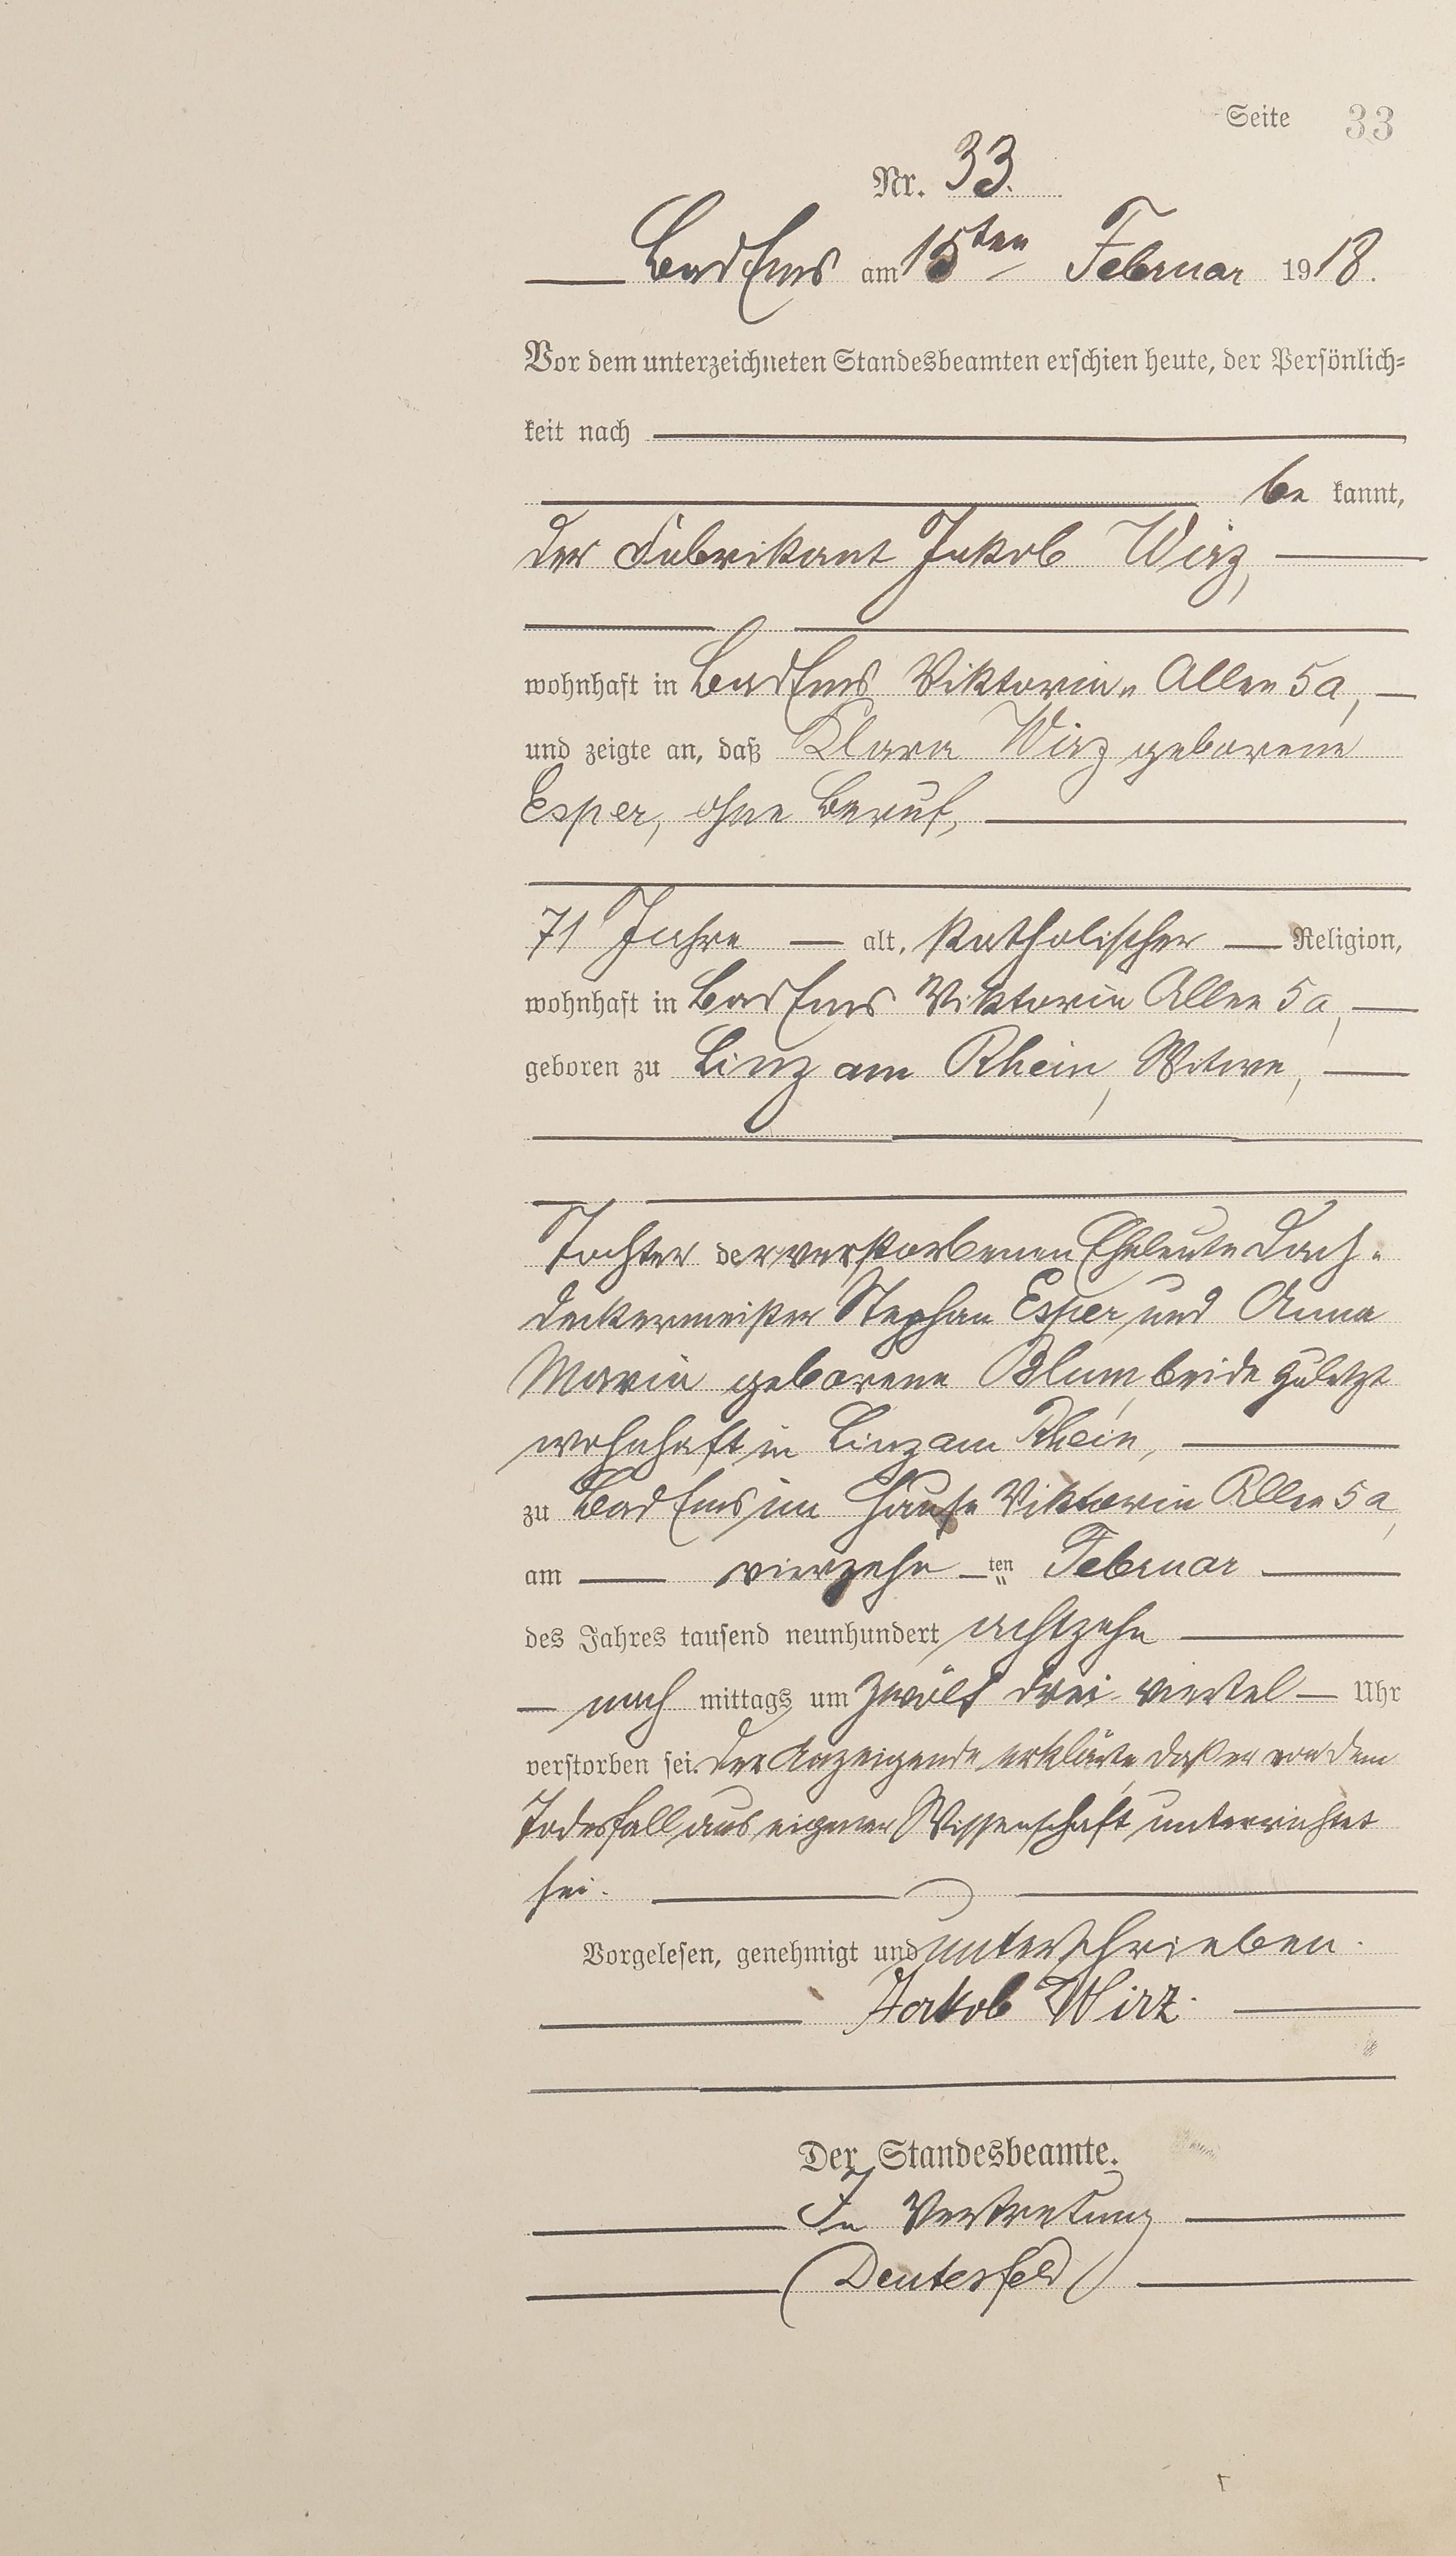 Seite 33
Nr. 33.
Bad Ems am 15ten Februar 1918.
Vor dem unterzeichneten Standesbeamten erschien heute, der Persönlich-
keit nach
be kannt,
der Fabrikant Jakob Wirz,
wohnhaft in Bad Ems Viktoria-Allee 5a,
und zeigte an, daß Klara Wirz geborene
Esper, ohne Beruf,
71 Jahre alt, katholischer Religion,
wohnhaft in Bad Ems Viktoria Allee 5a,
geboren zu Linz am Rhein, Witwe,
Tochter der verstorbenen Eheleute Dach-
deckermeister Stephan Esper und Anna
Maria geborene Blum, beide zuletzt
wohnhaft in Linz am Rhein,
zu Bad Ems im Hause Viktoria Allee 5a,
am vierzehn ten Februar
des Jahres tausend neunhundert achtzehn
nach mittags um zwölf drei viertel Uhr
verstorben sei. Der Anzeigende erklärte, daß er von dem
Todesfall aus eigener Wissenschaft unterrichtet
sei.
Vorgelesen, genehmigt und unterschrieben.
Jakob Wirz.
Der Standesbeamte.
In Vertretung
Deutesfeld